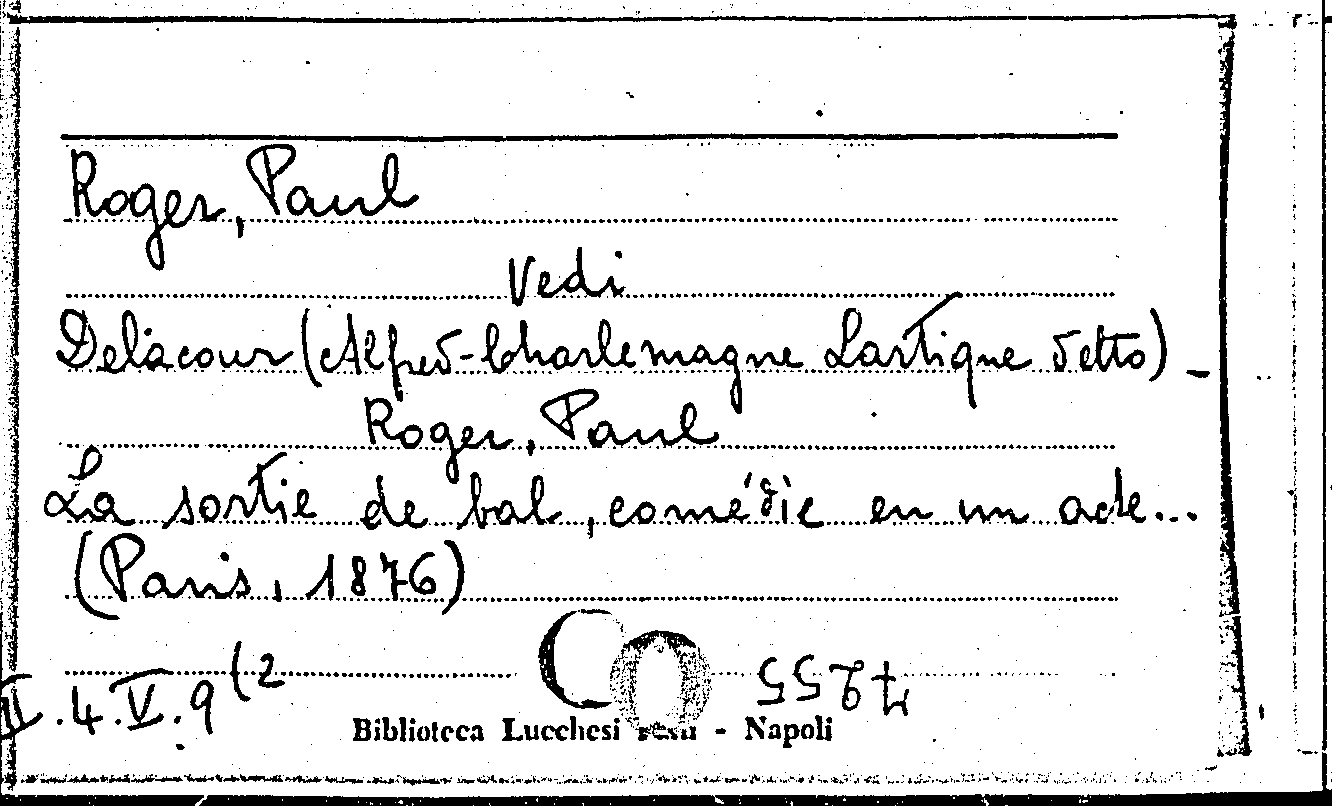 Roger, Paul
Vedi
Delacour (Alfred-Charlemagne Lartique detto) -
Roger, Paul
La sortie de bal, comédie en un acte...
(Paris, 1876)
II.4.V.9 (2
Biblioteca Lucchesi - Napoli